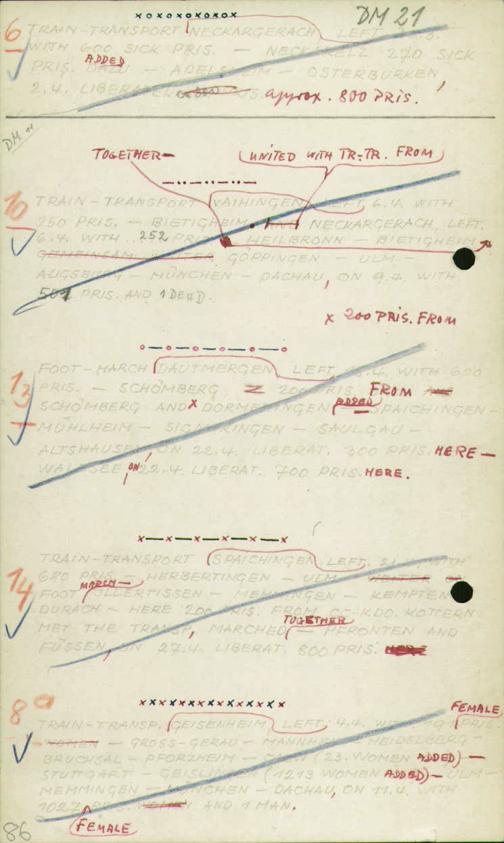 xoxoxoxoxoxox
DM 21
6 TRAIN-TRANSPORT NECKARGERACH, LEFT
WITH 600 SICK PRIS. — NECKARELZ 270 SICK
ADDED
PRIS. — ADELSHEIM — OSTERBURKEN
2.4. approx. 800 PRIS.
DM
TOGETHER— UNITED WITH TR.-TR. FROM
10 TRAIN-TRANSPORT VAIHINGEN LEFT 6.4. WITH
250 PRIS. — BIETIGHEIM NECKARGERACH, LEFT
6.4. WITH 252 HEILBRONN — BIETIGHEIM
GÖPPINGEN — ULM —
AUGSBURG — MÜNCHEN — DACHAU, ON 9.4. WITH
PRIS. AND 1 DEAD.
x 200 PRIS. FROM
13 FOOT-MARCH DAUTMERGEN LEFT WITH 600
PRIS. — SCHÖMBERG FROM
SCHÖMBERG AND x DORMETTINGEN ADDED — SPAICHINGEN—
MÜHLHEIM — SIGMARINGEN — SAULGAU —
ALTSHAUSEN, ON 22.4. LIBERAT. 300 PRIS. HERE —
WALDSEE ON 22.4. LIBERAT. 700 PRIS. HERE.
14 TRAIN-TRANSPORT SPAICHINGEN LEFT WITH
680 PRIS. — HERBERTINGEN — ULM
MARCH—
FOOT ILLERTISSEN — MEMMINGEN — KEMPTEN
DURACH — HERE 200 PRIS. FROM KDO. KOTTERN
TOGETHER
MET THE TRANSP., MARCHED — PFRONTEN AND
FÜSSEN, ON 27.4. LIBERAT. 800 PRIS.
FEMALE
8a TRAIN-TRANSP. GEISENHEIM, LEFT 4.4. WITH
WOMEN — GROSS-GERAU — MANNHEIM — HEIDELBERG
BRUCHSAL — PFORZHEIM — (23 WOMEN ADDED) —
STUTTGART — GEISLINGEN (1213 WOMEN ADDED) — ULM —
MEMMINGEN — MÜNCHEN — DACHAU, ON 11.4. WITH
AND 1 MAN.
FEMALE
86